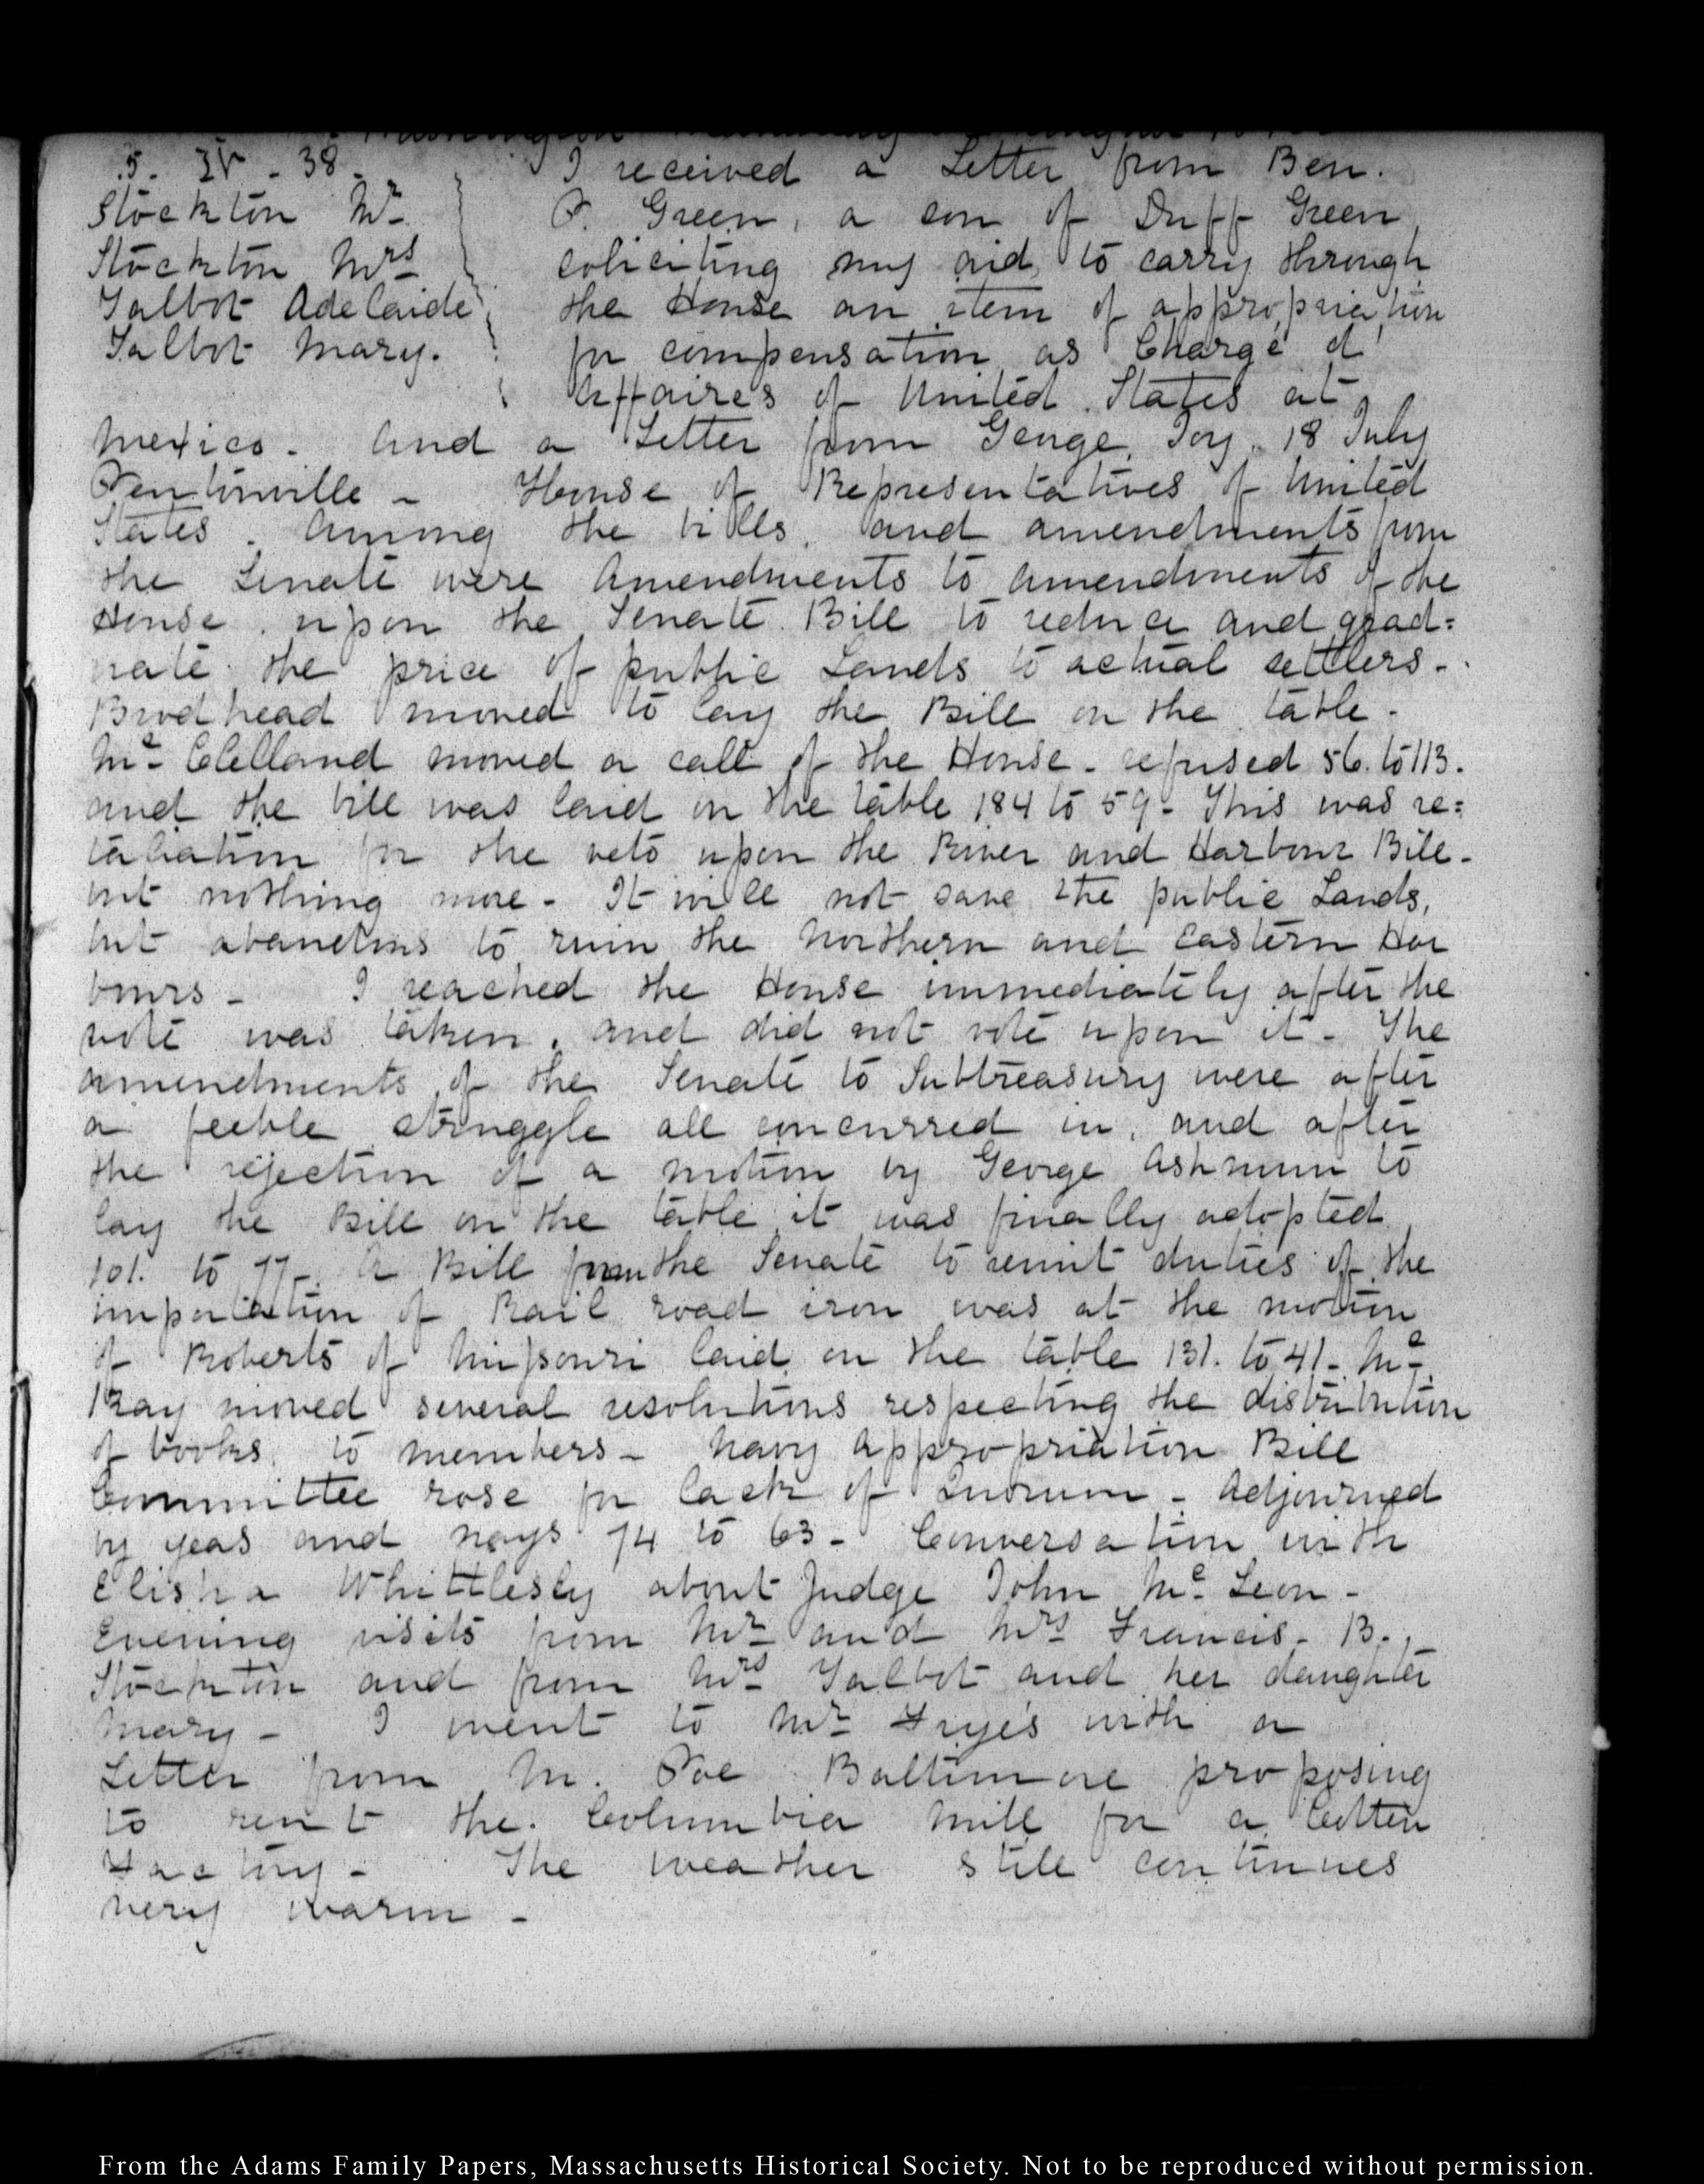 5. IV - 38.
Stockton Mr
Stockton Mrs
Talbot Adelaide
Talbot Mary.
I received a Letter from Ben.
Green, a son of Duff Green
soliciting my aid to carry through
the House an item of appropriation
for compensation as Chargé d'
Affaires of United States at
Mexico. And a Letter from George Joy. 18 July
Pentonville - House of Representatives of United
States. Among the bills and amendments from
the Senate were Amendments to amendments of the
House upon the Senate Bill to reduce and grad=
uate the price of public Lands to actual settlers.
Brodhead moved to lay the Bill on the table.
Mc Clelland moved a call of the House - refused 56. to 113.
and the bill was laid on the table 184 to 59 - This was re=
taliation for the veto upon the River and Harbour Bill -
but nothing more - It will not save the public Lands,
but abandons to ruin the Northern and Eastern Har
bours - I reached the House immediately after the
vote was taken, and did not vote upon it - The
amendments of the Senate to Subtreasury were after
a feeble struggle all concurred in, and after
the rejection of a motion by George Ashmun to
lay the Bill on the table it was finally adopted
101. to 77 - A Bill from the Senate to remit duties of the
importation of Rail road iron was at the motion
of Roberts of Missouri laid on the table 131. to 41 - Mc
Kay moved several resolutions respecting the distribution
of books to members - Navy Appropriation Bill
Committee rose for lack of Quorum - Adjourned
by yeas and nays 74 to 63 - Conversation with
Elisha Whittlesey about Judge John Mc Lean -
Evening visits from Mr and Mrs Francis. B.
Stockton and from Mrs Talbot and her daughter
Mary - I went to Mr Frye's with a
Letter from M. Poe Baltimore proposing
to rent the Columbia mill for a Cotton
Factory - The weather still continues
very warm -
From the Adams Family Papers, Massachusetts Historical Society. Not to be reproduced without permission.